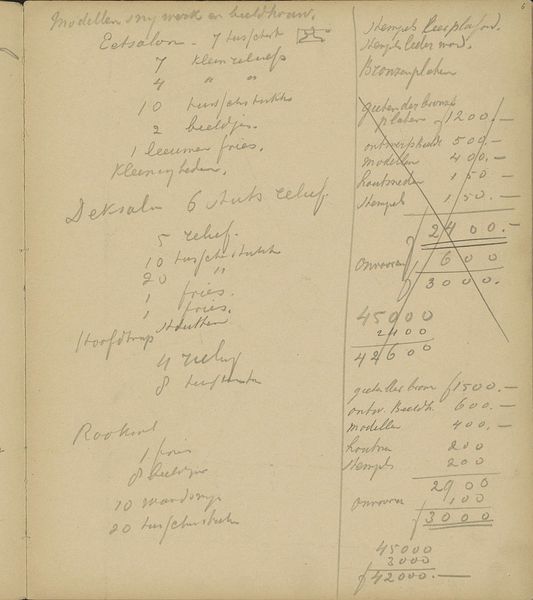 6
Modellen snywerk en beeldhouw.
Eetsalon - 7 tusschst
7 klein reliefs
4 " "
10 tusschstukke
2 beeldjes.
1 leeuwen fries.
Kleinigheden.
Deksalon 6 stuks relief.
5 relief.
10 tusschstukken
20 "
1 fries.
1 fries.
Hoofdtrap stukken
4 relief
8
Rooksal
1 fries
8 beeldjes
10
20 tusschenstukken
Stempels
Stempels leder
Bronzen platen
gieten der bronze
platen f 1200.—
ontwerp beeldh 500.—
modellen 400.—
houtsneden 150—
Stempels 150.—
f 2400.—
onvoorzien 600
f 3000.
45000
2400
42600
gieten der bron f 1500.—
ontw. Beeldh. 600.—
modellen 400.—
houtsn 200
Stempels 200
2900
onvoorzien 100
f 3000
45000
3000
f 42000.—